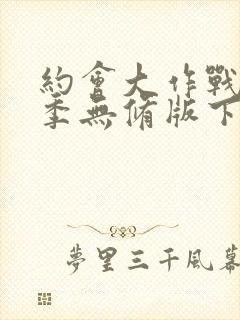 約會大作戰
季無修版下
夢里三千風幕